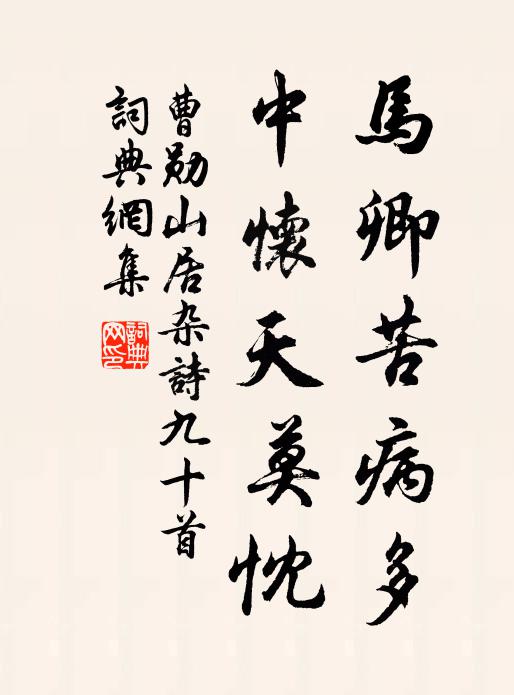 馬卿苦病多
中懷天莫忱
曹勋山居杂詩九十首
詞典網集
詞典網印